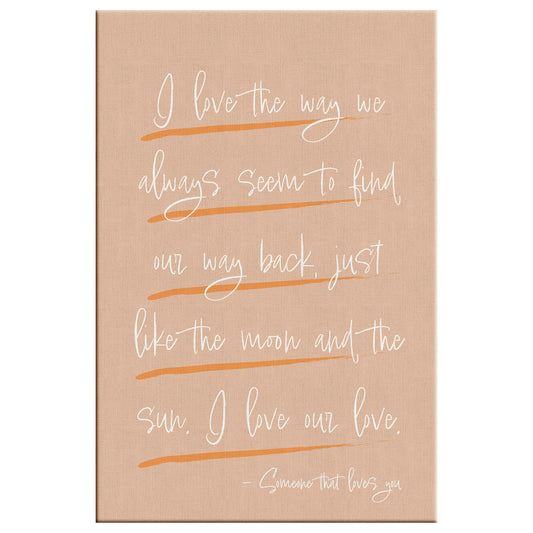 I love the way we
always seem to find
our way back, just
like the moon and the
sun. I love our love.
- Someone that loves you